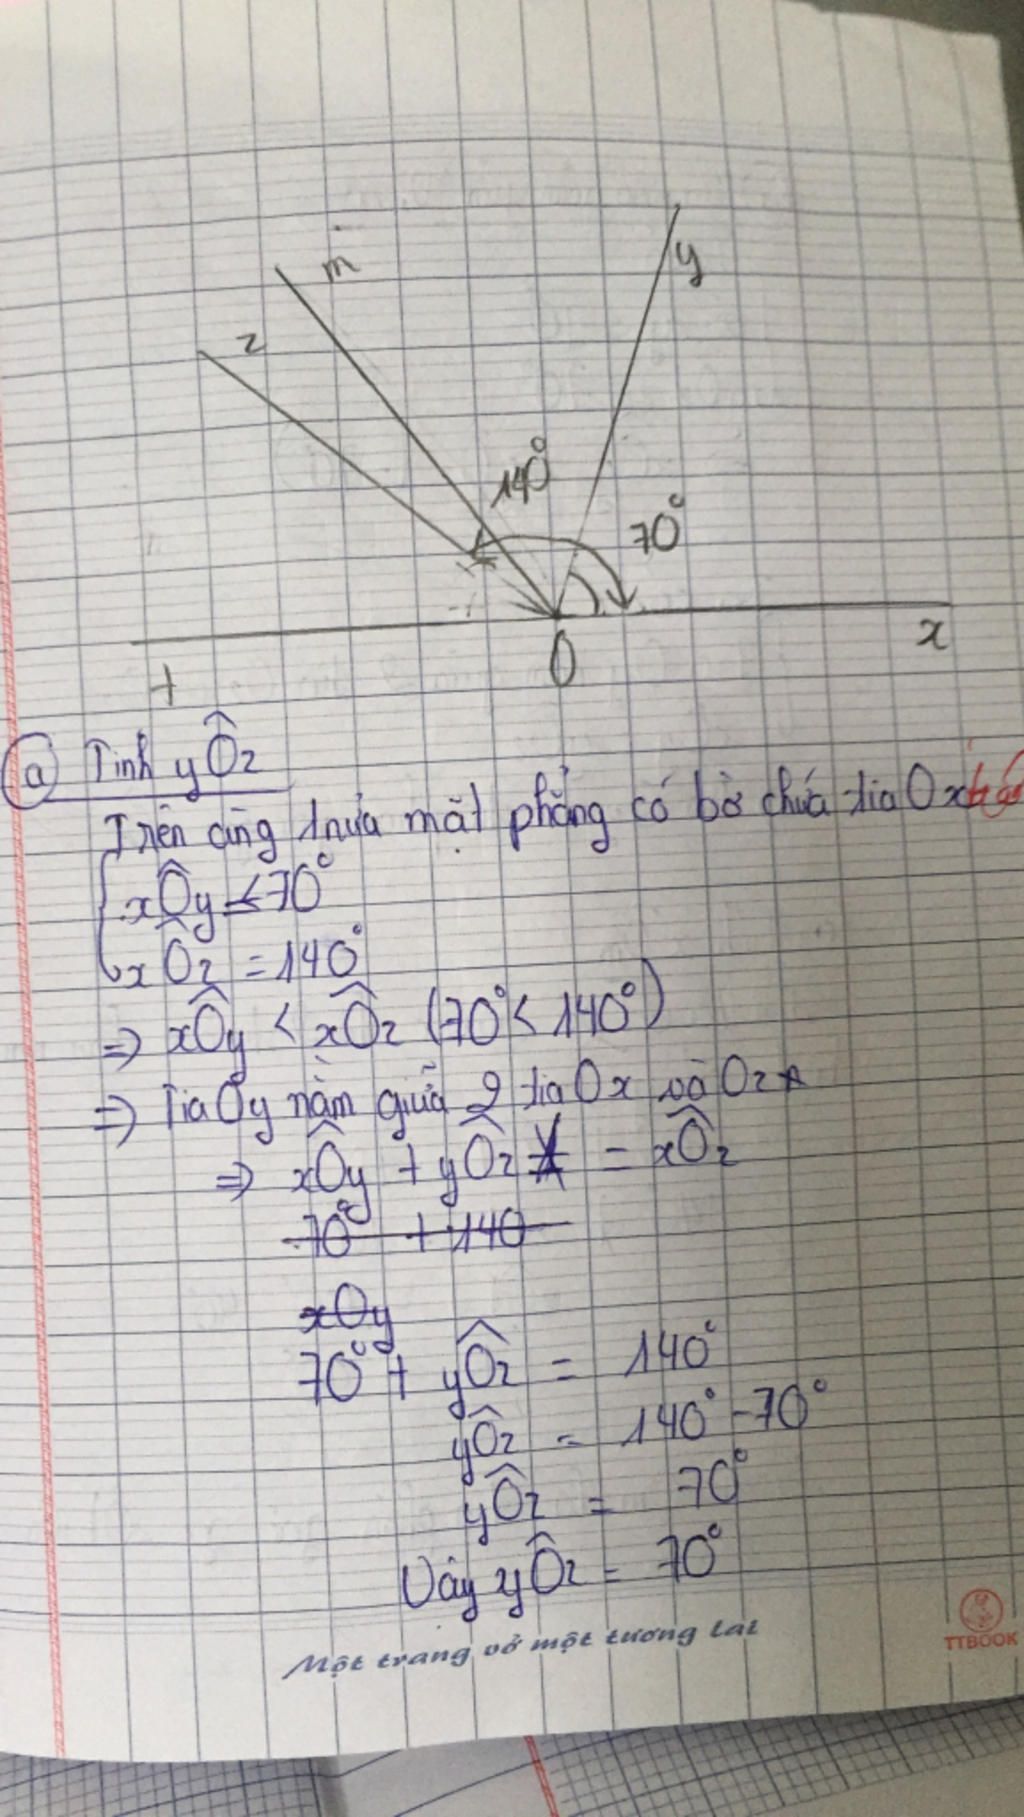 m
y
z
140°
70°
x
O
t
a Tính yÔz
Trên cùng 1 nửa mặt phẳng có bờ chứa tia Ox
xÔy = 70°
xÔz = 140°
=> xÔy < xÔz (70° < 140°)
=> Tia Oy nằm giữa 2 tia Ox và Oz
=> xÔy + yÔz = xÔz
70° + 140
xOy
70° + yÔz = 140°
yÔz = 140° - 70°
yÔz = 70°
Vậy yÔz = 70°
Một trang vở một tương lai
TTBOOK